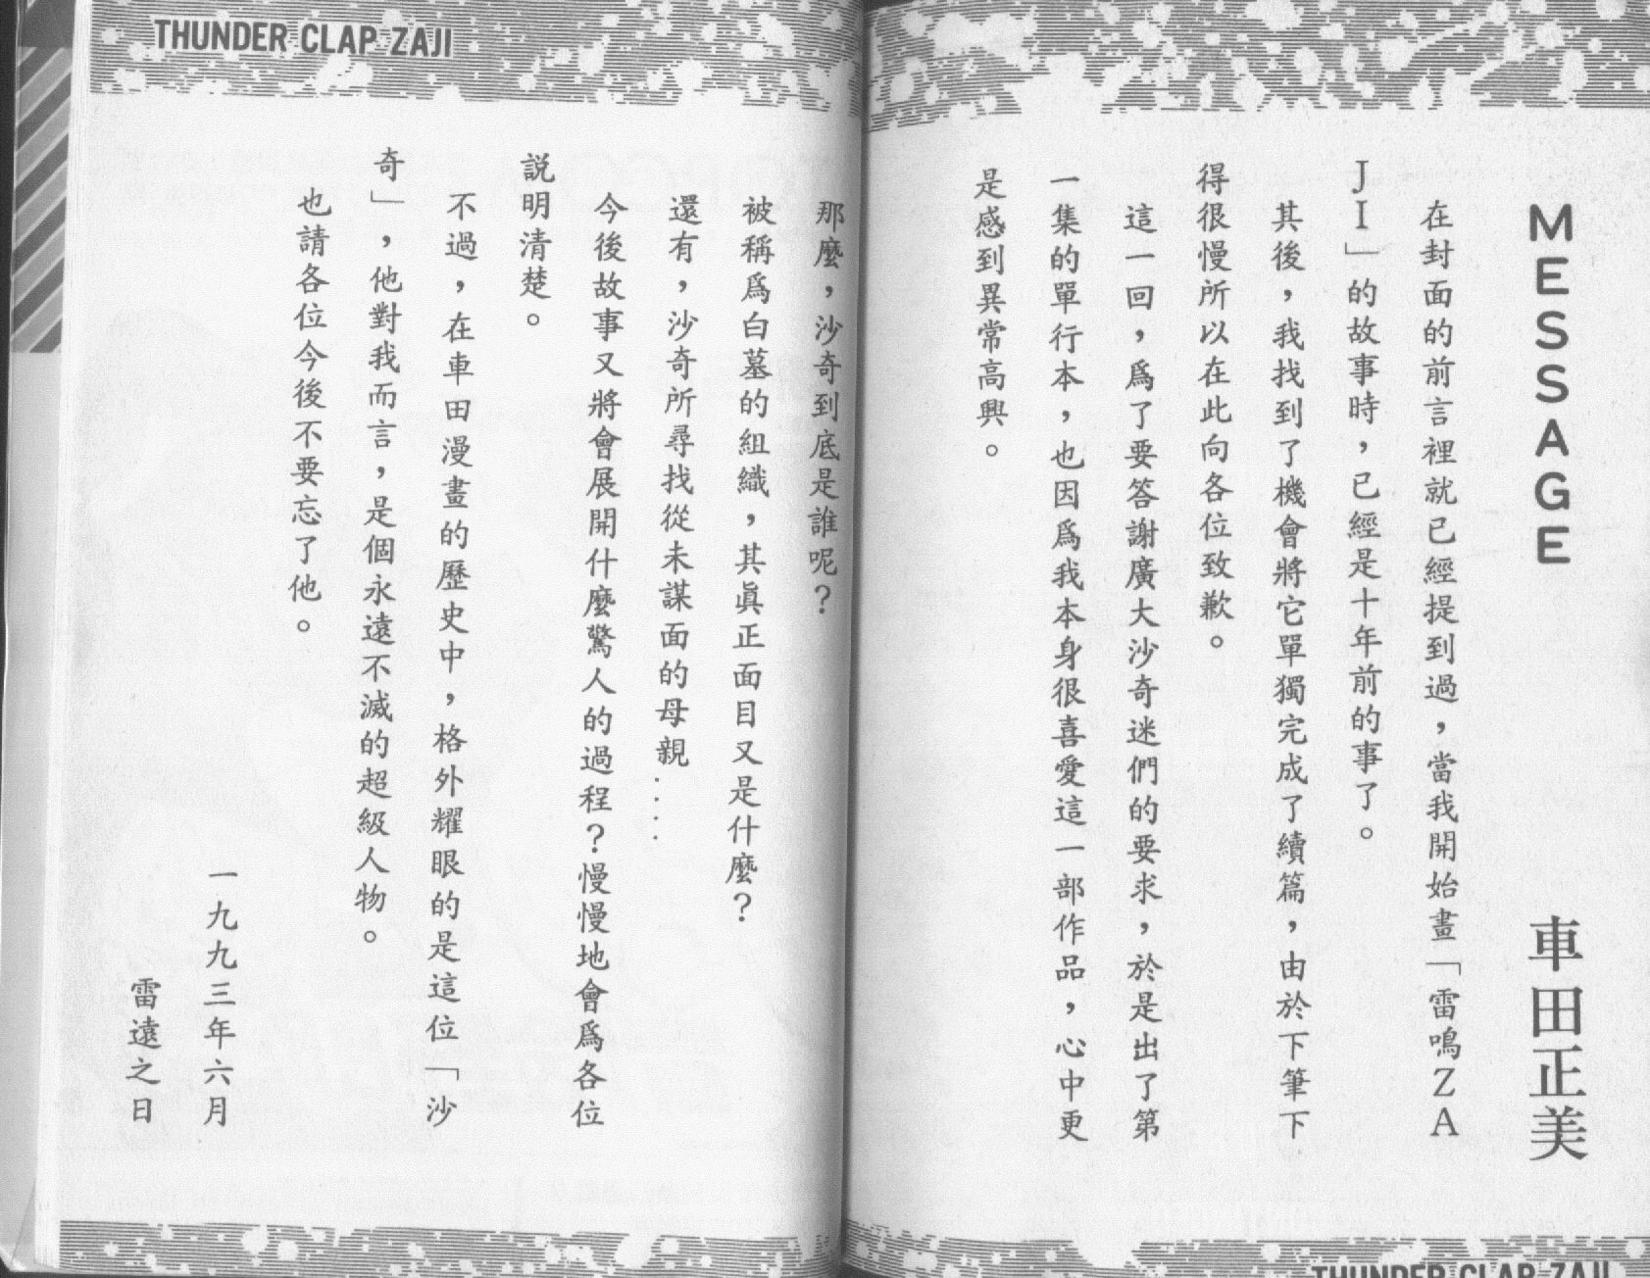 MESSAGE
車田正美
在封面的前言裡就已經提到過，當我開始畫「雷鳴ZA
JI」的故事時，已經是十年前的事了。
其後，我找到了機會將它單獨完成了續篇，由於下筆下
得很慢所以在此向各位致歉。
這一回，爲了要答謝廣大沙奇迷們的要求，於是出了第
一集的單行本，也因爲我本身很喜愛這一部作品，心中更
是感到異常高興。
THUNDER CLAP ZAJI
THUNDER CLAP ZAJI
那麼，沙奇到底是誰呢？
被稱爲白墓的組織，其眞正面目又是什麼？
還有，沙奇所尋找從未謀面的母親……
今後故事又將會展開什麼驚人的過程？慢慢地會爲各位
說明清楚。
不過，在車田漫畫的歷史中，格外耀眼的是這位「沙
奇」，他對我而言，是個永遠不滅的超級人物。
也請各位今後不要忘了他。
一九九三年六月
雷遠之日